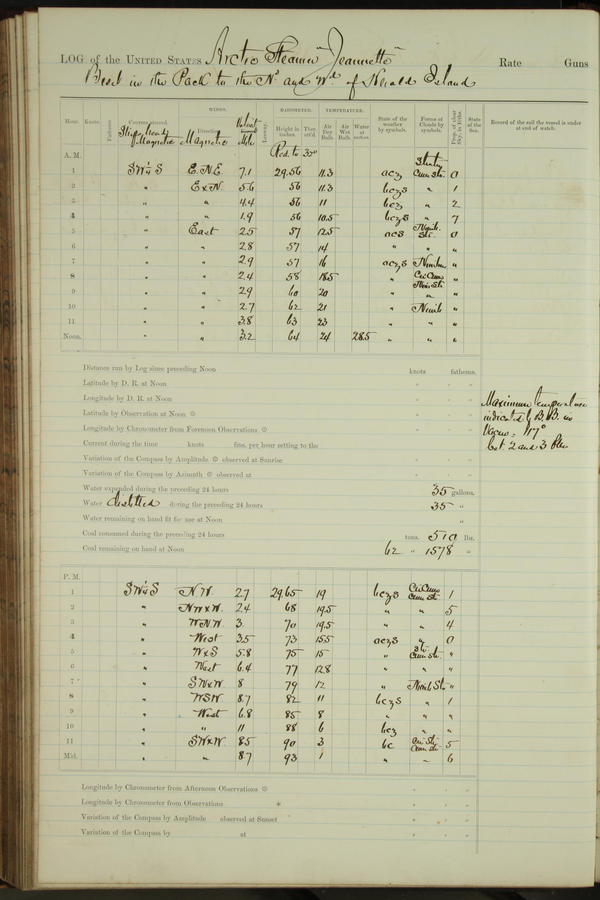 LOG of the UNITED STATES Arctic Steamer "Jeannette" Rate Guns
Beset in the Pack to the Nd and Wd of Herald Island
WINDS. BAROMETER. TEMPERATURE.
Hour. Knots. Fathoms. Ship's head Magnetic Direction Magnetic Velocity Miles Leeway. Height in inches. Ther. att'd. Air Dry Bulb. Air Wet Bulb. Water at surface. State of the weather by symbols. Forms of Clouds by symbols. Prop. of clear Sky, in tenths State of the Sea. Record of the sail the vessel is under at end of watch.
A. M. Red. to 32°
1 SW¼S E.N.E. 7.1 29.56 11.3 Cum Str. 0
2 " ExN. 5.6 56 11.3 bczs " 1
3 " " 4.4 56 11 bcz " 2
4 " " 1.9 56 10.5 bczs " 7
5 " East 2.5 57 12.5 Nimb. Str. 0
6 " " 2.8 57 14 " " "
7 " " 2.9 57 16 aczs "
8 " " 2.4 58 18.5 " Cir Cum "
9 " " 2.9 60 20 " " "
10 " " 2.7 62 21 " Nimb "
11 " " 3.8 63 23 " " "
Noon. " " 3.2 64 24 28.5 " " "
Distance run by Log since preceding Noon knots fathoms.
Latitude by D. R. at Noon
Longitude by D. R. at Noon
Latitude by Observation at Noon
Longitude by Chronometer from Forenoon Observations
Current during the time knots fms. per hour setting to the
Variation of the Compass by Amplitude observed at Sunrise
Variation of the Compass by Azimuth observed at
Water expended during the preceding 24 hours 35 gallons.
Water distilled during the preceding 24 hours 35 "
Water remaining on hand fit for use at Noon "
Coal consumed during the preceding 24 hours tons. 510 lbs.
Coal remaining on hand at Noon 62 " 1578 "
Maximum temperature
indicated by B.B. in
Vacuo = 117°
bet. 2 and 3 P.M.
P. M.
1 SW¼S N.W. 2.7 29.65 19 bczs Cir Cum Cum Str. 1
2 " NWxW. 2.4 68 19.5 " " 5
3 " WNW. 3 70 19.5 " " 4
4 " West 3.5 73 15.5 aczs " 0
5 " WxS 5.8 75 15 " Str. Cum Str. "
6 " West 6.4 77 12.8 " " "
7 " SWxW. 8 79 12 " Nimb Str "
8 " WSW. 8.7 82 11 bczs " 1
9 " West 6.8 85 8 " " "
10 " " 11 88 6 bcz " "
11 " SWxW. 8.5 90 3 bc Cir Str Cum Str 5
Mid. " " 8.7 93 1 " " 6
Longitude by Chronometer from Afternoon Observations
Longitude by Chronometer from Observations *
Variation of the Compass by Amplitude observed at Sunset
Variation of the Compass by at